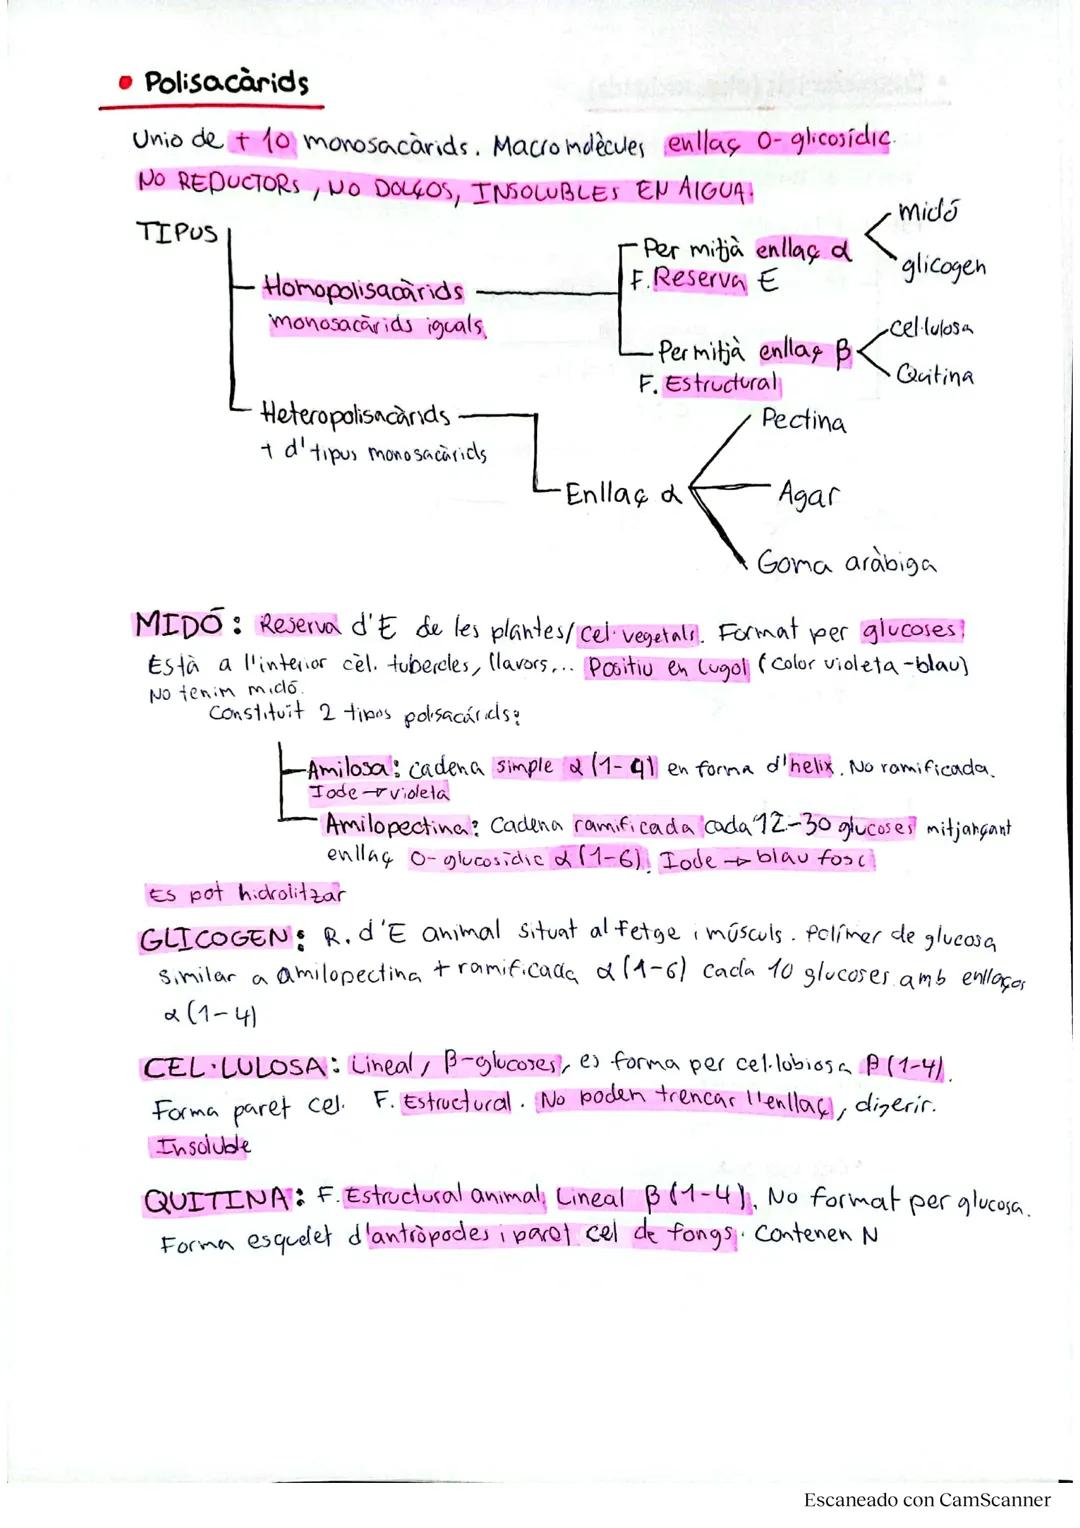 • Polisacàrids
Unio de + 10 monosacàrids. Macromolècules enllaç O-glicosídic.
NO REDUCTORS, NO DOLÇOS, INSOLUBLES EN AIGUA.
TIPUS
Homopolisacàrids
monosacàrids iguals
Per mitjà enllaç α
F. Reserva E
midó
glicogen
Per mitjà enllaç β
F. Estructural
Cel·lulosa
Quitina
Heteropolisacàrids
+ d'tipus monosacàrids
Enllaç α
Pectina
Agar
Goma aràbiga
MIDÓ: Reserva d'E de les plantes/cel·vegetals. Format per glucoses.
Està a l'interior cèl. tubercles, llavors,... Positiu en Lugol (color violeta-blau)
No tenim midó.
Constituit 2 tipos polisacárids:
Amilosa: cadena simple α (1-4) en forma d'helix. No ramificada.
Iode → violeta
Amilopectina: Cadena ramificada cada 12-30 glucoses mitjançant
enllaç O-glucosídic α (1-6). Iode → blau fosc
Es pot hidrolitzar
GLICOGEN: R. d'E animal situat al fetge i músculs. Polímer de glucosa
Similar a amilopectina + ramificada α (1-6) cada 10 glucoses amb enllaços
α (1-4)
CEL·LULOSA: Lineal, β-glucoses, es forma per cel·lobiosa β (1-4).
Forma paret cel. F. Estructural. No podem trencar l'enllaç, digerir.
Insoluble
QUITINA: F. Estructural animal. Lineal β (1-4). No format per glucosa.
Forma esquelet d'antròpodes i paret cel de fongs. Contenen N
Escaneado con CamScanner